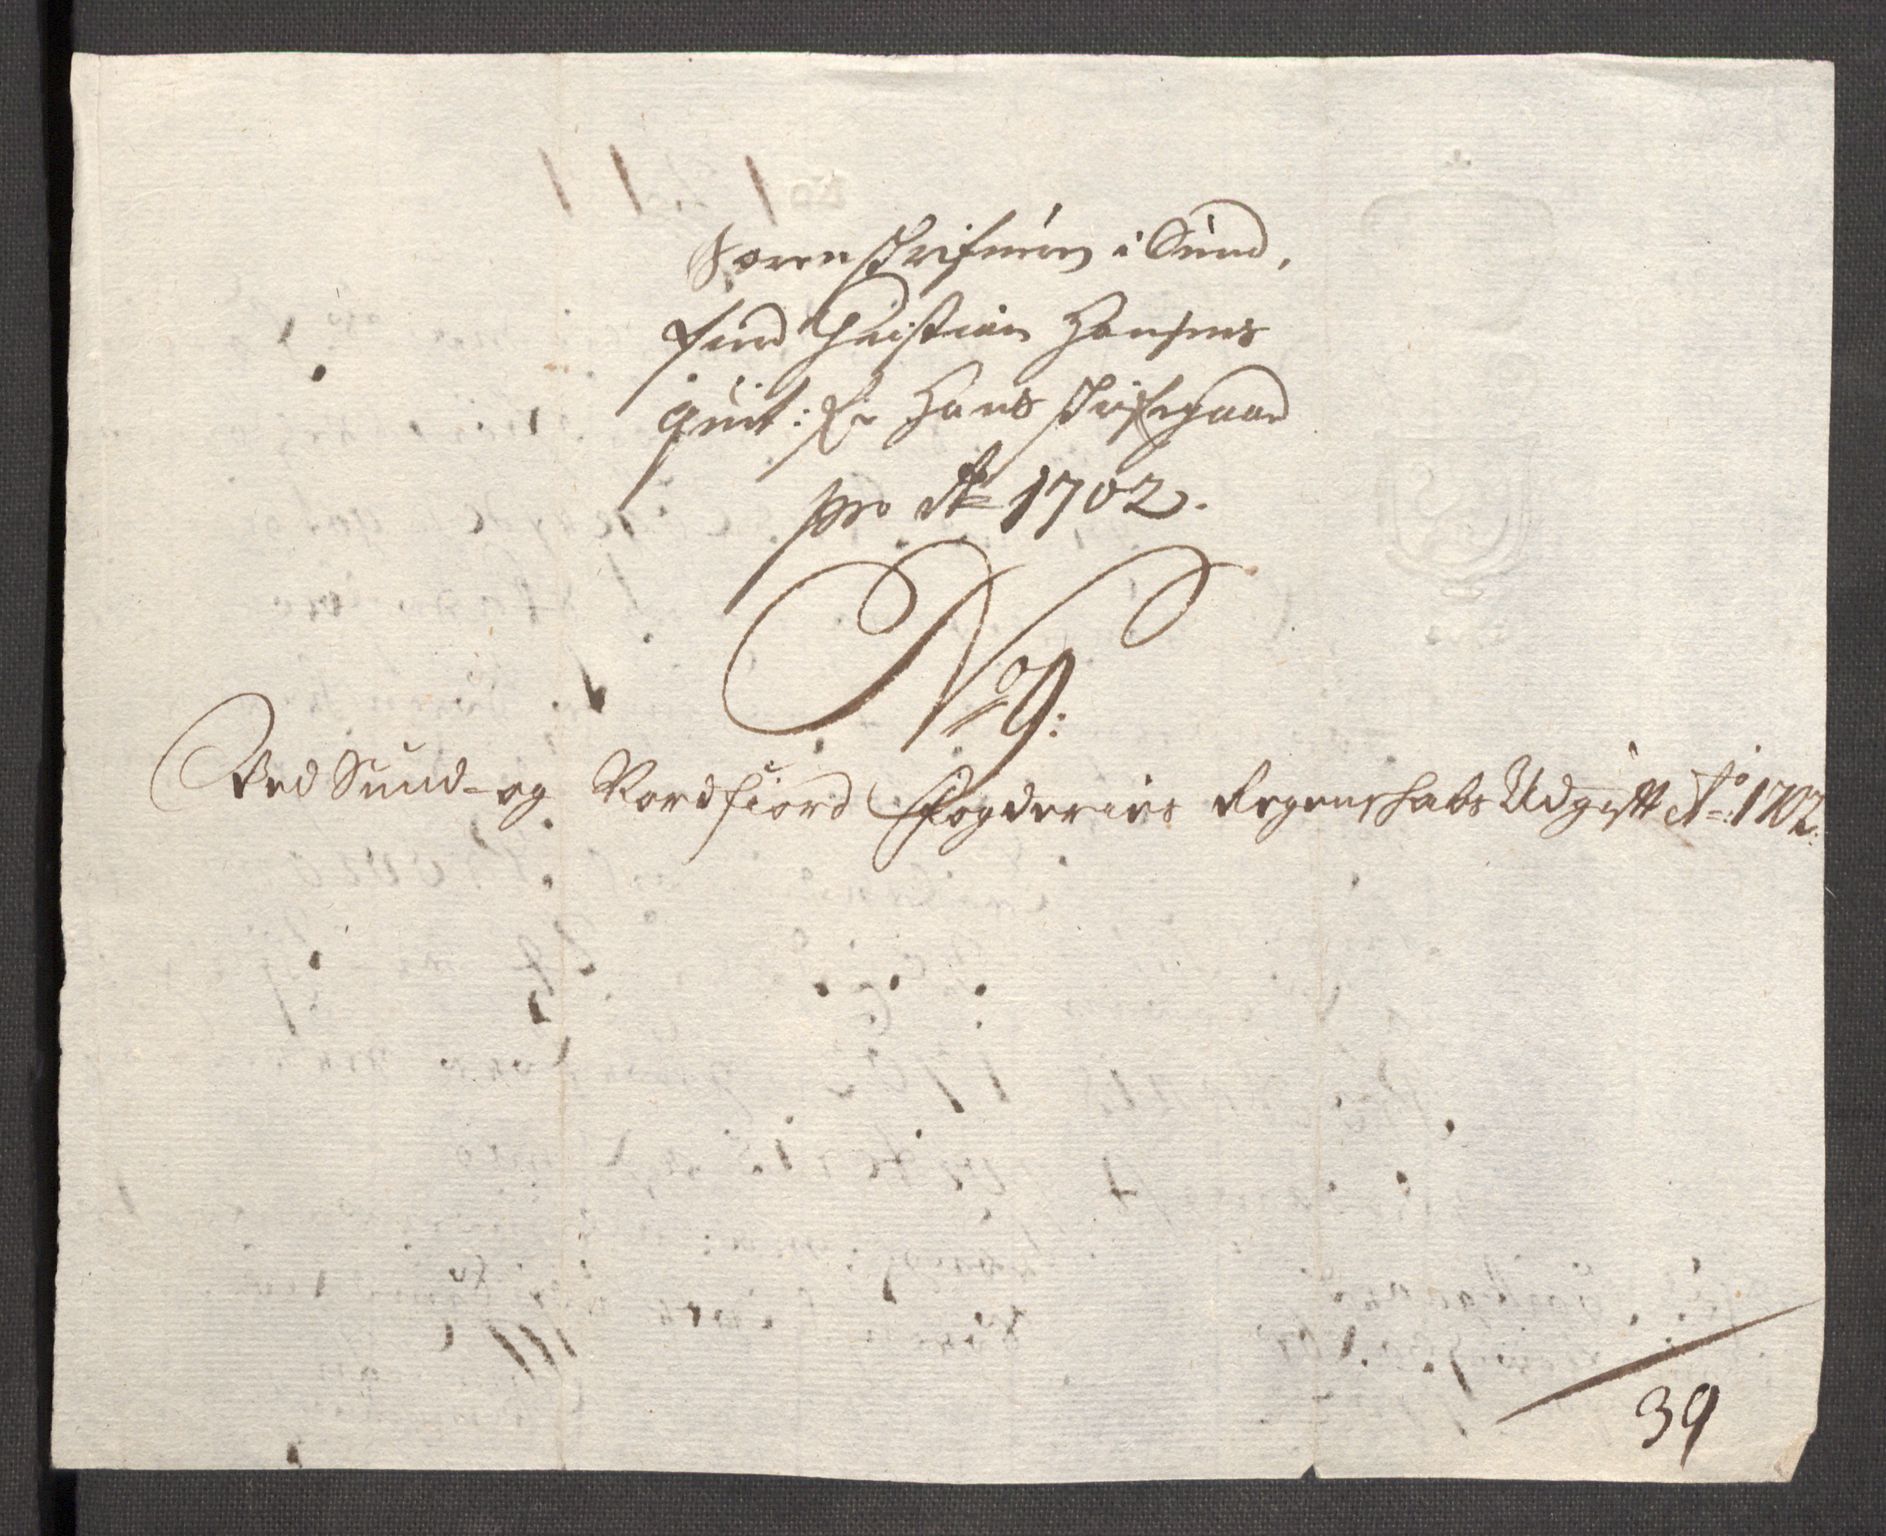 Sorenschrifueren i Sund,
fiord Christian Hansens
quit: for Hans schrifvgaard
pro Ao 1702.
No 9:
Ved Sund- og Nordfiord Fogderies Regenschabs Udgift Ao: 1702:
39